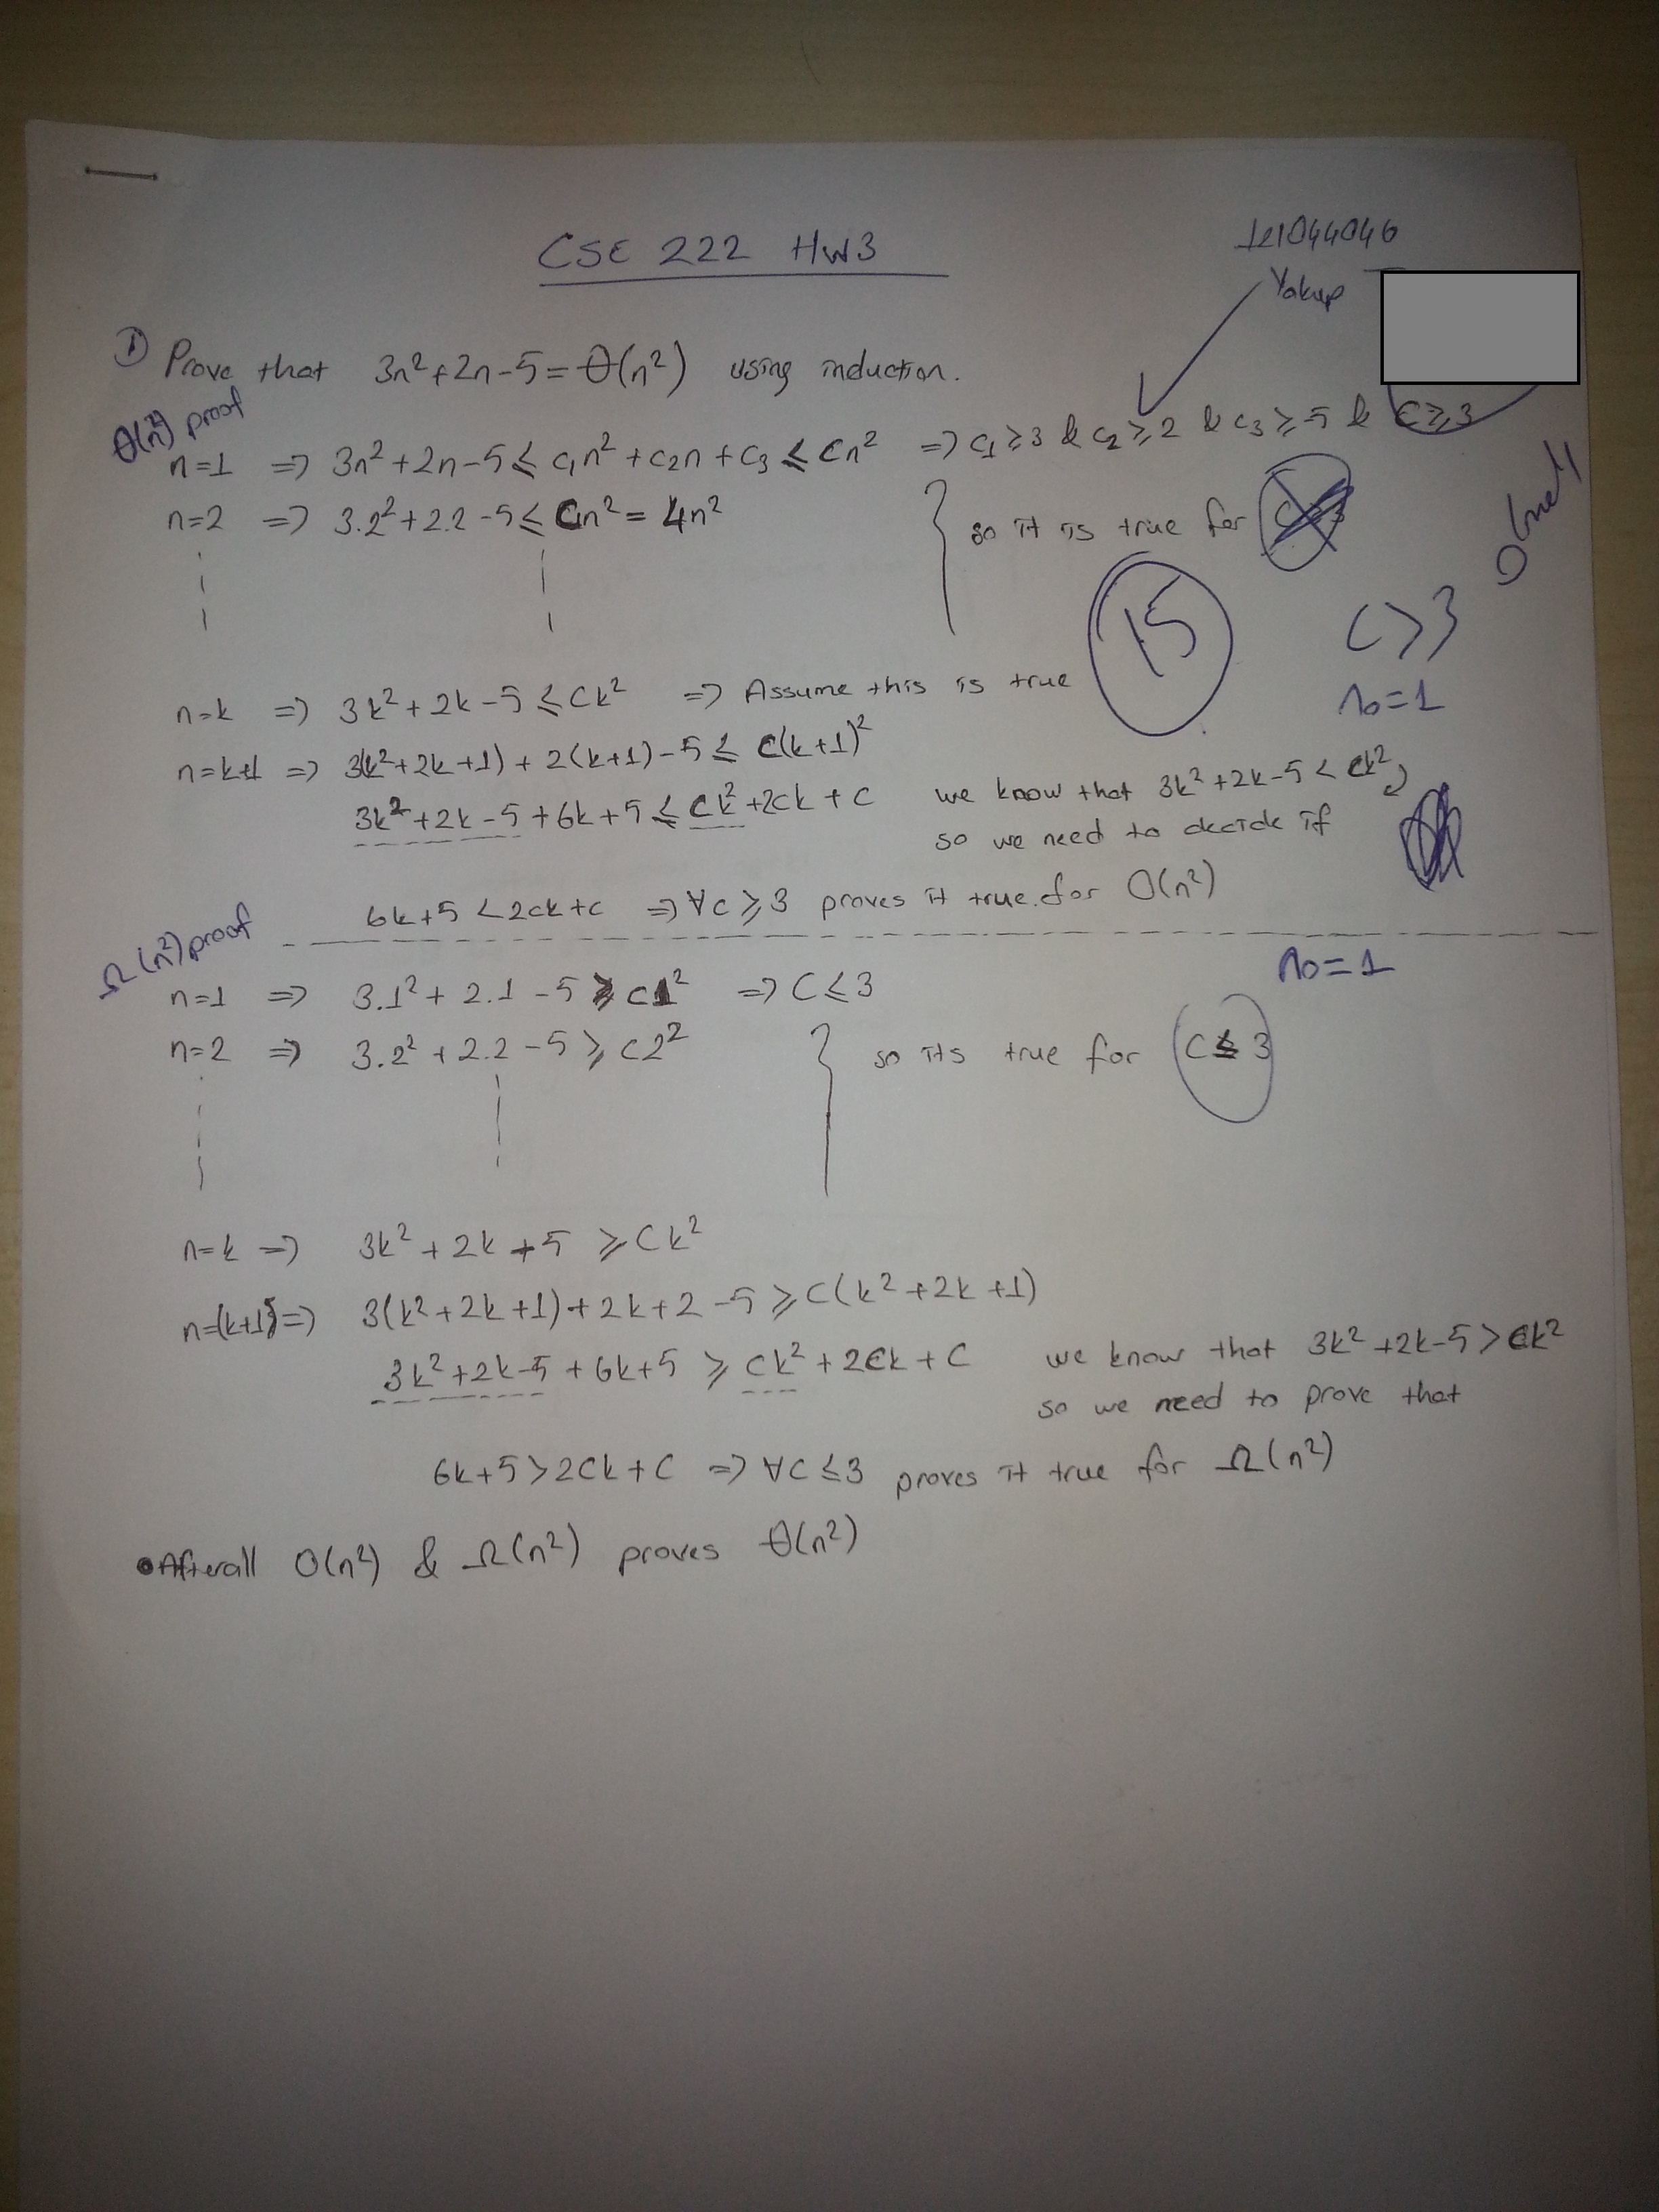 CSE 222 HW3
121044046
Yakup
① Prove that 3n²+2n-5=Θ(n²) using induction.
Θ(n²) proof
n=1 => 3n²+2n-5 ≤ c₁n²+c₂n+c₃ ≤ cn² => c₁≥3 & c₂≥2 & c₃≥-5 & c≥3
n=2 => 3.2²+2.2-5 ≤ cn² = 4n² } so it is true for
olmalı
15
c>3
n₀=1
n=k => 3k²+2k-5 ≤ ck² => Assume this is true
n=k+1 => 3(k²+2k+1)+2(k+1)-5 ≤ c(k+1)²
3k²+2k-5+6k+5 ≤ ck²+2ck+c we know that 3k²+2k-5 < ck²
so we need to decide if
6k+5 < 2ck+c => ∀c≥3 proves it true for O(n²)
Ω(n²) proof
n₀=1
n=1 => 3.1²+2.1-5 ≥ c1² => c≤3
n=2 => 3.2²+2.2-5 ≥ c2² } so its true for c≤3
n=k => 3k²+2k+5 ≥ ck²
n=(k+1) => 3(k²+2k+1)+2k+2-5 ≥ c(k²+2k+1)
3k²+2k-5+6k+5 ≥ ck²+2ck+c we know that 3k²+2k-5 > ck²
so we need to prove that
6k+5 > 2ck+c => ∀c≤3 proves it true for Ω(n²)
•Afterall O(n²) & Ω(n²) proves Θ(n²)